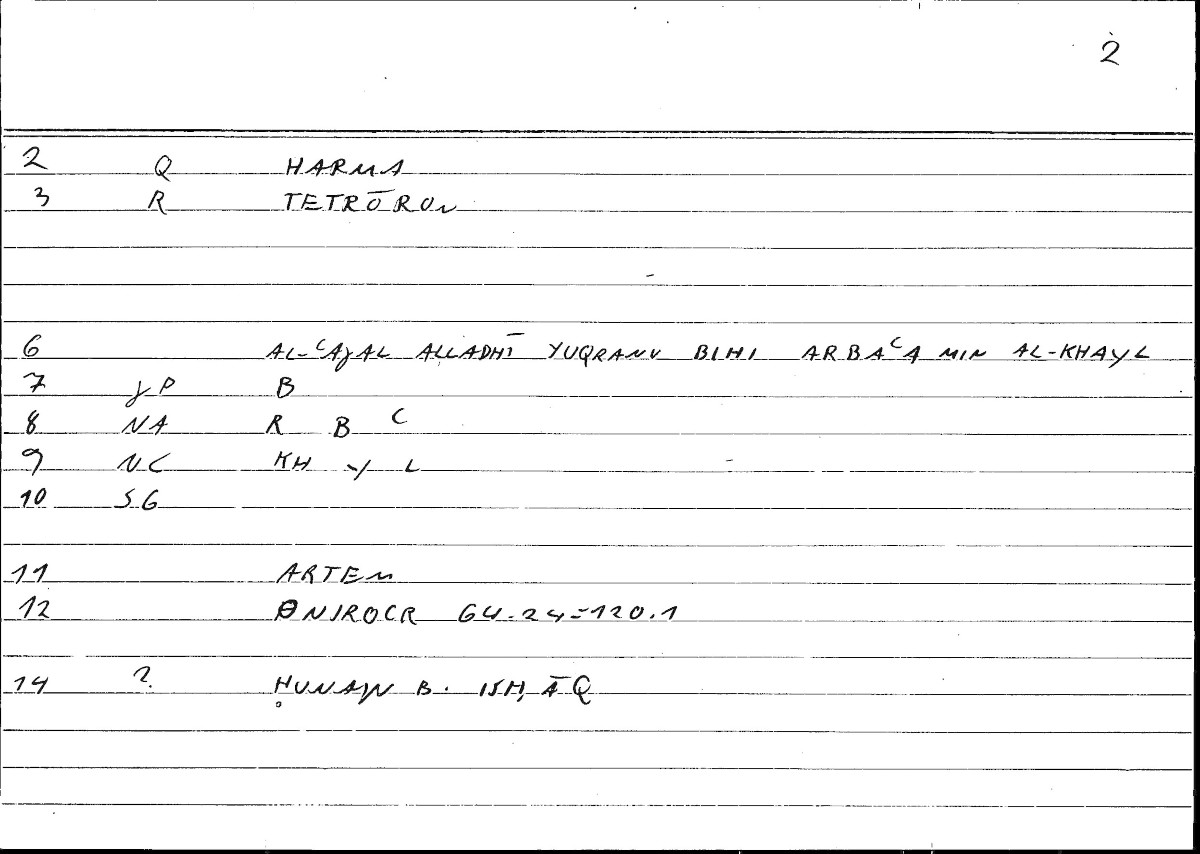 2
2 Q HARMA
3 R TETRŌRON
6 AL-ᶜAJAL ALLADHĪ YUQRANU BIHI ARBAᶜA MIN AL-KHAYL
7 JP B
8 NA R B ᶜ
9 NC KH Y L
10 SG
11 ARTEM
12 ONIROCR 64.24=120.1
14 ? ḤUNAYN B. ISḤĀQ